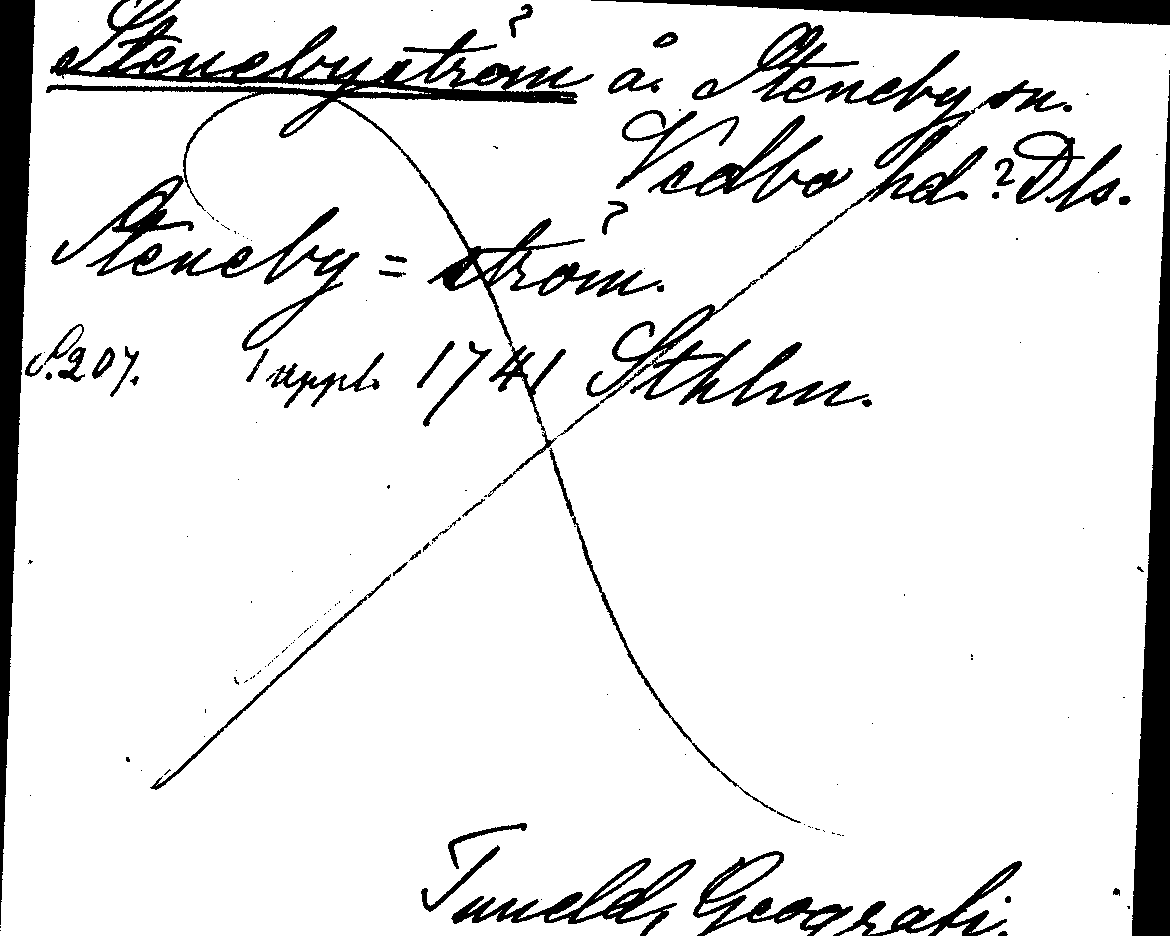 Stenebyström å. Steneby sn.
Vedbo hd. ? Dls.
Steneby = ström.
S. 207. 1 uppl. 1741 Sthlm.
Tuneld, Geografi.